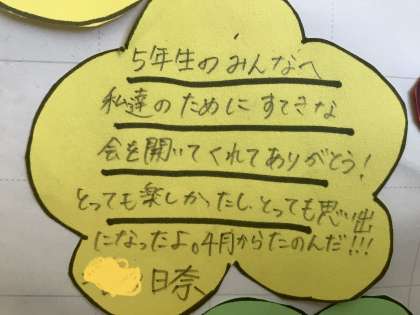 5年生のみんなへ
私達のためにすてきな
会を開いてくれてありがとう!
とっても楽しかったし、とっても思い出
になったよ。4月からたのんだ!!!
日奈